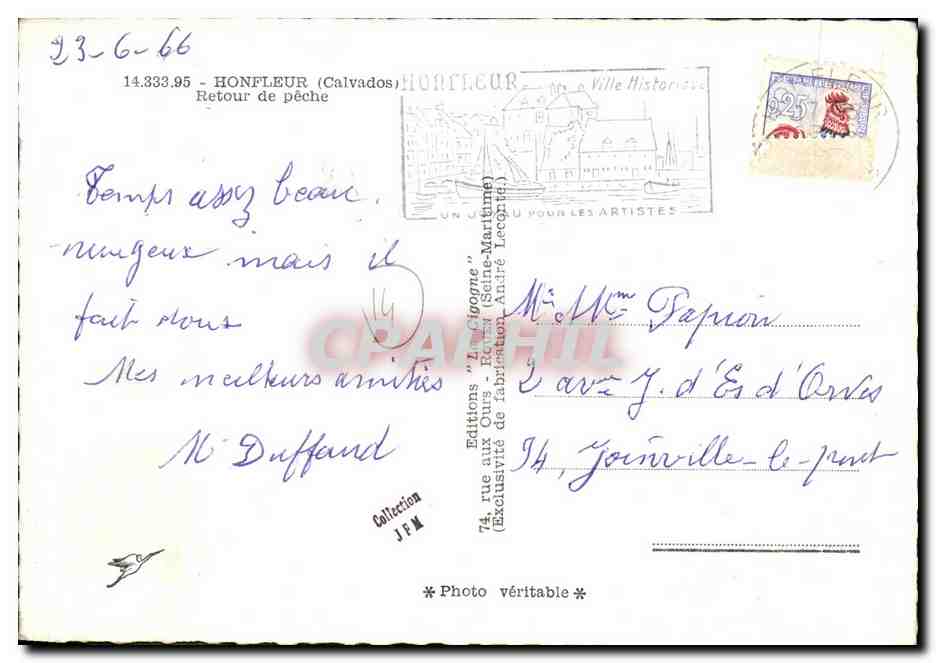 23-6-66
14.333.95 - HONFLEUR (Calvados)
Retour de pêche
HONFLEUR Ville Historique
UN JOYAU POUR LES ARTISTES
0,25
Temps assez beau,
nuageux mais il
fait doux
Mes meilleurs amitiés
M Duffaud
14
Collection
JFM
Editions "La Cigogne"
74, rue aux Ours - ROUEN (Seine-Maritime)
(Exclusivité de fabrication André Leconte.)
CPAPHIL
Mr Mme Papion
2 avue J. d'Es d'Orves
94, Joinville-le-pont
* Photo véritable *